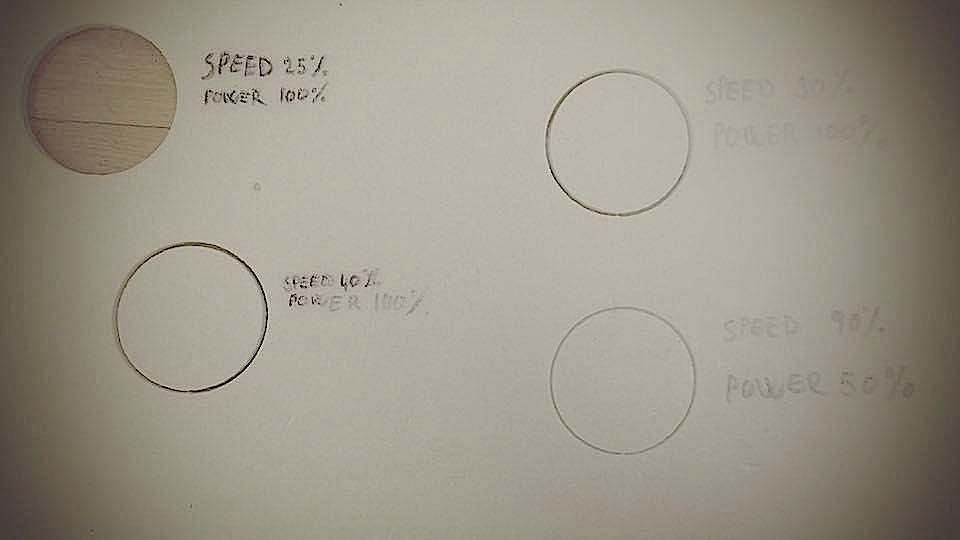 SPEED 25%
POWER 100%
SPEED 50%
POWER 100%
SPEED 40%
POWER 100%
SPEED 90%
POWER 50%